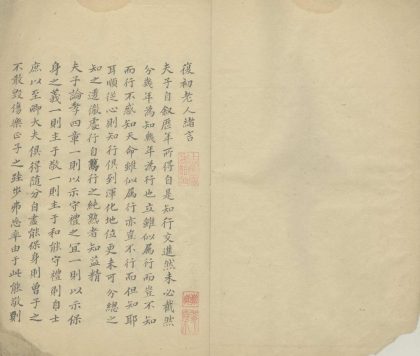 復初老人緒言
夫子自叙歷年所得自是知行交進然未必截然
分幾年為知幾年為行也立雖似屬行而豈不知
而行不惑知天命雖似屬知亦豈不行而但知耶
耳順從心則知行俱到渾化地位更未可分總之
知之透徹處行自篤行之純熟者知益精
夫子論孝四章一則以示守禮之宜一則以示保
身之義一則主于敬一則主于和能守禮則自士
庶以至卿大夫俱得隨分自盡能保身則曾子之
不敢毀傷樂正子之跬步弗忘率由于此能敬則